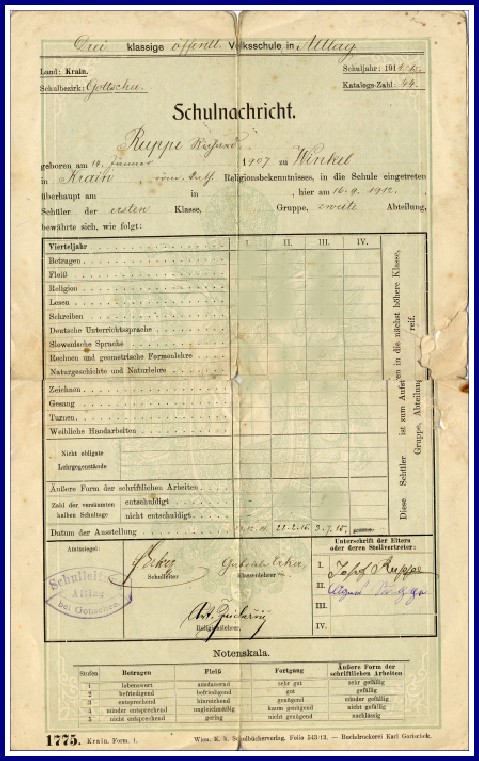 Drei klassige öffentl. Volksschule in Altlag
Land: Krain.
Schuljahr: 191
Schulbezirk: Gottschee.
Katalogs-Zahl: 44.
Schulnachricht.
Ruppe Richard
geboren am 1907 zu Winkel
in Krain, röm. kath. Religionsbekenntnisses, in die Schule eingetreten
überhaupt am in , hier am 16. 9. 1912.
Schüler der ersten Klasse, Gruppe, zweite Abteilung,
bewährte sich, wie folgt:
Vierteljahr I. II. III. IV.
Betragen
Fleiß
Religion
Lesen
Schreiben
Deutsche Unterrichtssprache
Slowenische Sprache
Rechnen und geometrische Formenlehre
Naturgeschichte und Naturlehre
Zeichnen
Gesang
Turnen
Weibliche Handarbeiten
Nicht obligate
Lehrgegenstände
Äußere Form der schriftlichen Arbeiten
Zahl der versäumten halben Schultage
entschuldigt
nicht entschuldigt
Datum der Ausstellung
Diese Schüler ist zum Aufsteigen in die nächst höhere Klasse,
Gruppe, Abteilung reif.
Amtssiegel:
Schulleiter
Klassenlehrer
Religionslehrer.
Schulleitung
Altlag
bei Gottschee
Unterschrift der Eltern
oder deren Stellvertreter:
I. Josef Ruppe
II.
III.
IV.
Notenskala.
Stufen Betragen Fleiß Fortgang Äußere Form der schriftlichen Arbeiten
1 lobenswert ausdauernd sehr gut sehr gefällig
2 befriedigend befriedigend gut gefällig
3 entsprechend hinreichend genügend minder gefällig
4 minder entsprechend ungleichmäßig kaum genügend nicht gefällig
5 nicht entsprechend gering nicht genügend nachlässig
1775. Krain. Form. 1.
Wien. K. k. Schulbücherverlag. Folio 543/13. — Buchdruckerei Karl Gorischek.